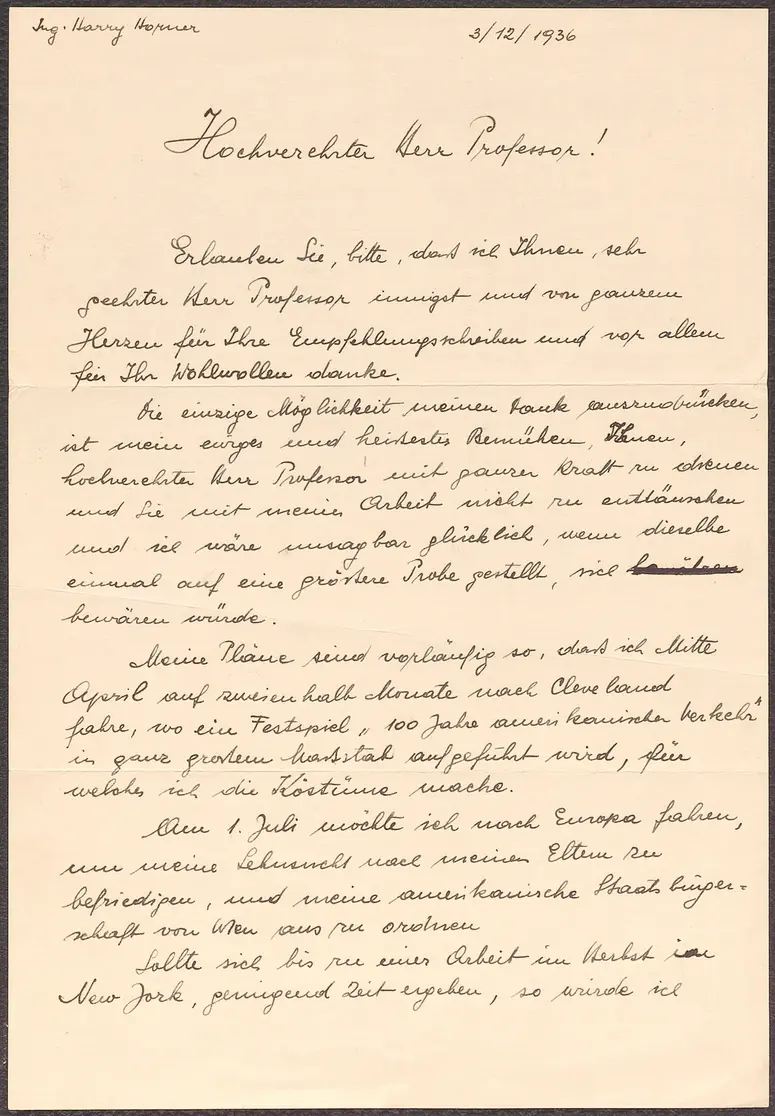 Ing. Harry Horner
3/12/1936
Hochverehrter Herr Professor!
Erlauben Sie, bitte, dass ich Ihnen, sehr
geehrter Herr Professor innigst und von ganzem
Herzen für Ihre Empfehlungsschreiben und vor allem
für Ihr Wohlwollen danke.
Die einzige Möglichkeit meinen Dank auszudrücken,
ist mein ewiges und heissestes Bemühen, Ihnen,
hochverehrter Herr Professor mit ganzer Kraft zu dienen
und Sie mit meiner Arbeit nicht zu enttäuschen
und ich wäre unsagbar glücklich, wenn dieselbe
einmal auf eine grössere Probe gestellt, sich
bewären würde.
Meine Pläne sind vorläufig so, dass ich Mitte
April auf zweienhalb Monate nach Cleveland
fahre, wo ein Festspiel „100 Jahre amerikanischer Verkehr"
in ganz grossem Massstab aufgeführt wird, für
welches ich die Köstüme mache.
Am 1. Juli möchte ich nach Europa fahren,
um meine Sehnsucht nach meinen Eltern zu
befriedigen, und meine amerikanische Staatsbürger=
schaft von Wien aus zu ordnen
Sollte sich bis zu einer Arbeit im Herbst in
New Jork, genügend Zeit ergeben, so würde ich